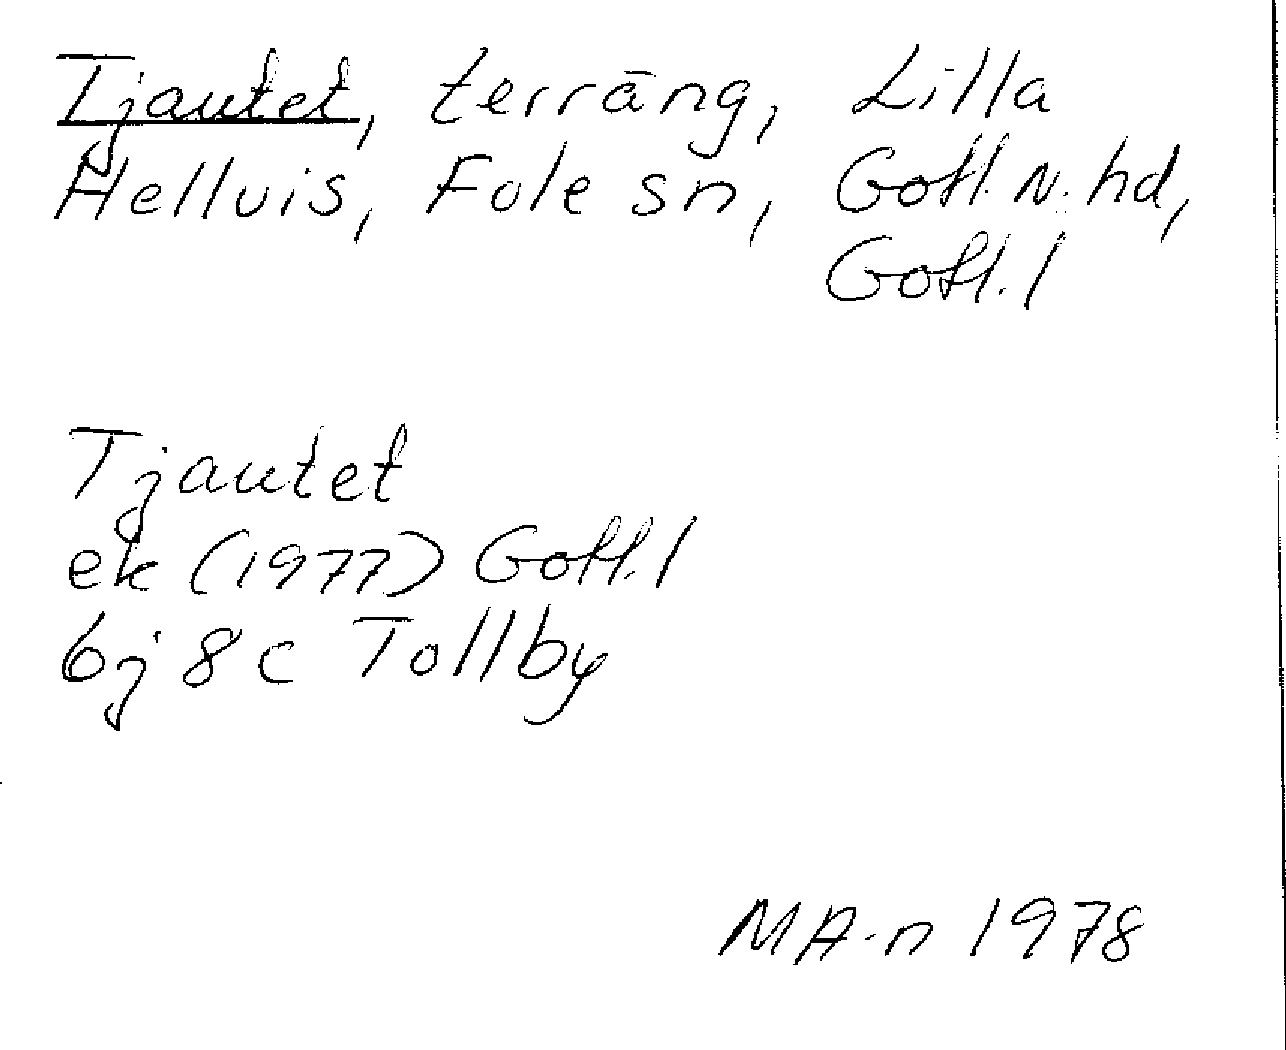 Tjautet, terräng, Lilla
Hellvis, Fole sn, Gotl. N. hd,
Gotl. l
Tjautet
ek (1977) Gotl. l
6j 8c Tollby
MA-n 1978